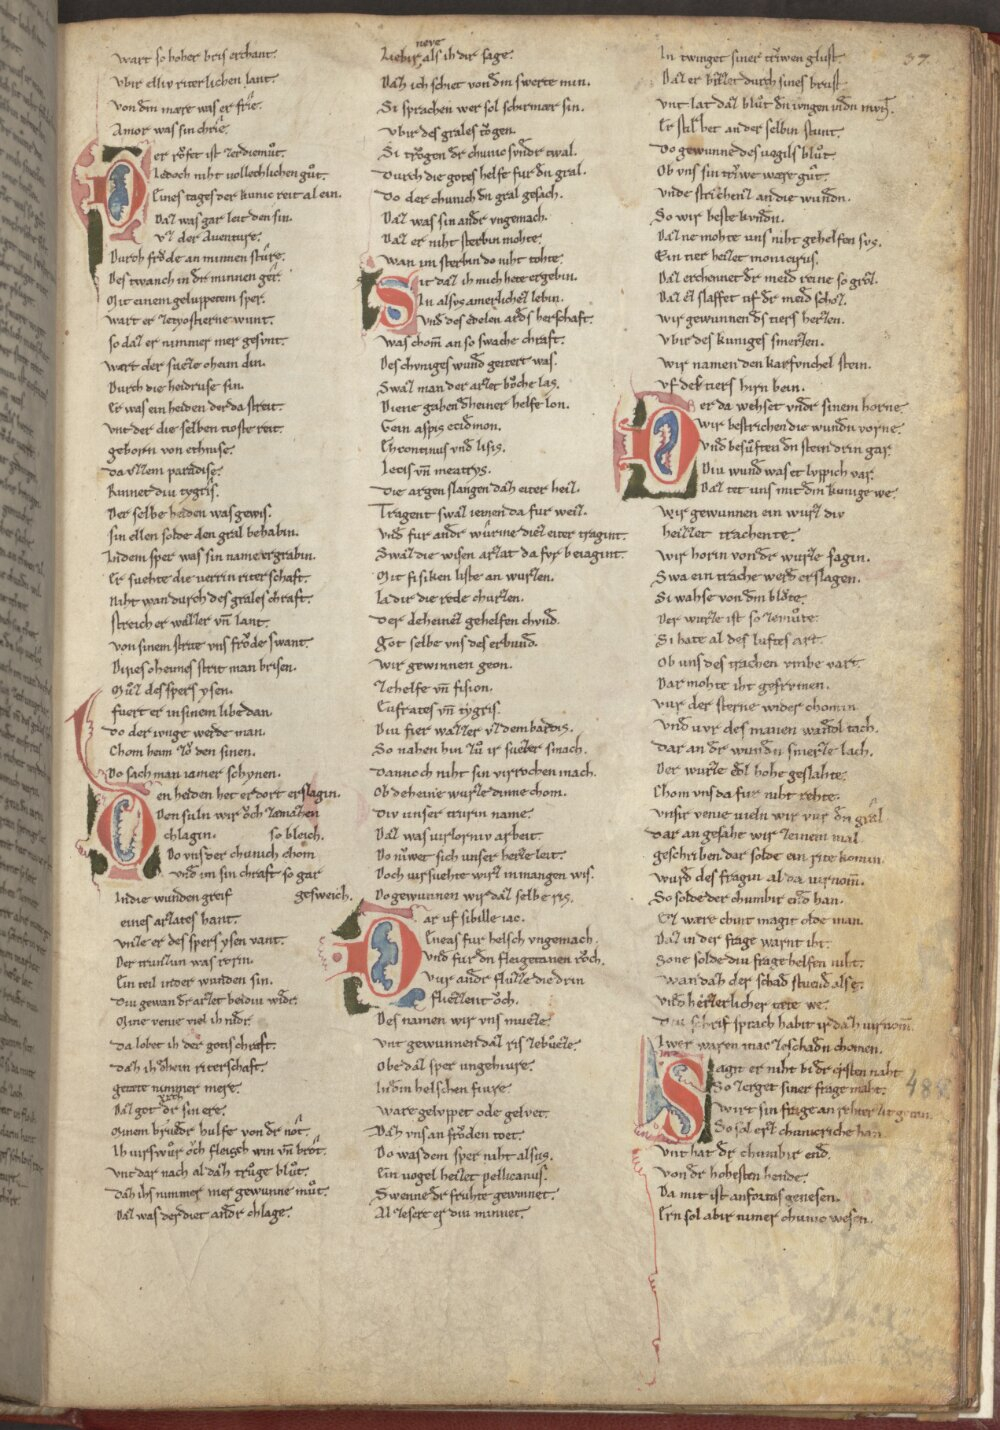 wart so hoher bris erchant.
Vbir elliv riterlichen lant.
Von dm mære was er frîe.
Amor was sin chrîe.
er rof̊et ist zerdiemůt.
Iedoch niht vollechlichen gůt.
Eines tages der kunic reit al ein.
Daz was gar leit den sin.
vz der Aventure.
Durch frode an minnen stûre.
Des twanch in dr minnen ger.
Mit einem geluppetem sper.
wart er ze tyostierne wunt.
so daz er nimmer mer gesunt.
wart der sueze oheim din.
Durch die heidruse sin.
Er was ein heiden der da streit.
vnt der die selben tioste reit.
geborn von ethnise.
da vzzem paradise.
Rinnet diu tygris.
Der selbe heiden was gewis.
sin ellen solde den gral behabin.
Indem sper was sin name ergrabin.
Er suehte die verrin riterschaft.
Niht wan durch des grales chraft.
streich er wazzer vn̄ lant.
von sinem strite vns frôde swant.
Dines oheimes strit man brisen.
Můz des spers ysen.
fuert er in sinem libe dan.
Do der ivnge werde man.
Chom heim zo den sinen.
Do sach man iamer schynen.
en heiden het er dort erslagin.
Den suln wir ôch ze mazhen
chlagin. so bleich.
Do vns der chunich chom
vnd im sin chraft so gar
Indie wunden greif gesweich.
eines arzates hant.
vnze er des spers ysen vant.
Der trunzun was rorin.
Ein teil inder wunden sin.
Diu gewan dr arzet beidiu widr.
Mine venie viel ih nidr.
Da lobet ih der gotis chraft.
daz ih dhein riterschaft.
getæte nummer mere.
Daz got dvrch sin ere.
Minem brudr hulfe von dr nôt.
Ih virswůr ôch fleisch win vn̄ brôt.
vnt dar nach al daz trůge blůt.
daz ihs nummer mer gewunne můt.
Daz was der diet andr chlage.
Liebir neve als ih dir sage.
Daz ich schiet von dm swerte min.
Si sprachen wer sol schirmær sin.
Vbir des grales tôgen.
Si trôgen dr chunic syndr twal.
Durch die gotes helfe fur dn gral.
Do der chunich dn gral gesach.
Daz was sin andr vngemach.
Daz er niht sterbin mohte.
wan im sterbin do niht tohte.
it daz ih mich hete ergebin.
In alsus amerlichez lebin.
Vnd des edeln ards herschaft.
Was chom̄ an so swache chraft.
Des chuniges wund geitert was.
Swaz man der arzet bôche las.
Diene gaben dheiner helfe lon.
Gein aspis ecidmon.
Ehcontinus vnd lisis.
Lecis vn̄ meatrys.
die argen slangen daz eiter heiz.
Tragent swaz iemen da fur weiz.
Vnd fur andr wûrme diez eiter tragint.
Swaz die wisen arzat da fvr beiagint.
Mit fisiken liste an wurzen.
La dir die rede churzen.
der deheinez gehelfen chvnd.
Got selbe vns des erbund.
wir gewinnen geon.
zehelfe vn̄ fision.
Eufrates vn̄ tygris.
Diu fier wazzer vz dem bardis.
So nahen hin zů ir suezer smach.
dannoch niht sin virrochen mach.
Ob deheine wurze dinne chom.
div unser trurin name.
Daz was virlorniv arbeit.
Do nůwet sich unser herze leit.
Doch virsuehte wirz in mangen wis.
Do gewunnen wir daz selbe ris.
ar uf sibille iac.
Eneas fur helsch vngemach.
vnd fur dn fleigetanen rôch.
Vur andr fluzze die drin
fliezzent ôch.
Des namen wir vns mueze.
vnt gewunnen daz ris ze bůeze.
Obe daz sper ungehiure.
In dm helschen fiure.
ware geluppet ode gelvet.
Daz vns an frôden toet.
Do was dem sper niht alsus.
Ein vogel heizet pellicanus.
Swenne dr fruhte gewinnet.
Al ze sere er diu minnet.
In twinget siner triwen glust.
Daz er bizzet durch sines brust.
vnt lat daz blůt dn ivngen in dn mvnd.
Er stirbet an der selbin stunt.
Do gewunne des vogils blůt.
Ob vns sin triwe ware gůt.
vnde strichenz an die wundn.
So wir beste kvndn.
Daz ne mohte uns niht gehelfen sus.
Ein tier heizet monicirus.
Daz erchennet dr meid reine so grôz.
Daz ez slaffet uf dr meid schoz.
wir gewunnen ds tiers herzen.
Vbir des kuniges smerzen.
wir namen den karfvnchel stein.
vf des tiers hirn bein.
er da wehset vndr sinem horne
wir bestrichen die wundn vorne.
Vnd besůften dn stein drin gar.
Diu wund was et luppich var.
Daz tet uns mit dm kunige we.
wir gewunnen ein wurz div
heizzet trachente.
wir horin von dr wurze sagin.
Swa ein trache werd erslagen.
Si wahse von dm blôte.
Der wurze ist so zemůte.
Si hate al des luftes art.
Ob uns des trachen vmbe vart.
Dar mohte iht gefrvmen.
vur der sterne wider chomin
vnd vvr des manen wandl tach.
dar an dr wundn smerze lach.
Der wurze edl hohe geslahte.
Chom vns da fur niht rehte.
vnsir venie vieln wir vur dn grâl
dar an gesahe wir zeinem mal
geschriben dar solde ein riter komin
wurd des fragin al da virnom̄.
So solde der chumbir end han.
Ez wære chint magit olde man.
Daz in der frage warnt iht.
Sone solde diu frage helfen niht.
wan daz der schad stuend alse.
vnd herzerlicher tæte we.
Diu schrif sprach habit ir daz virnom̄.
Iwer waren mac ze schadn chomen.
ragit er niht bi dr ersten naht
So zerget siner frage maht.
wirt sin frage an rehter zit getan.
So sol erz chunicriche han
vnt hat dr chumbir end.
Von dr hohesten hende.
Da mit ist anfortas genesen.
Ern sol abir nimer chunic wesen.
37
488